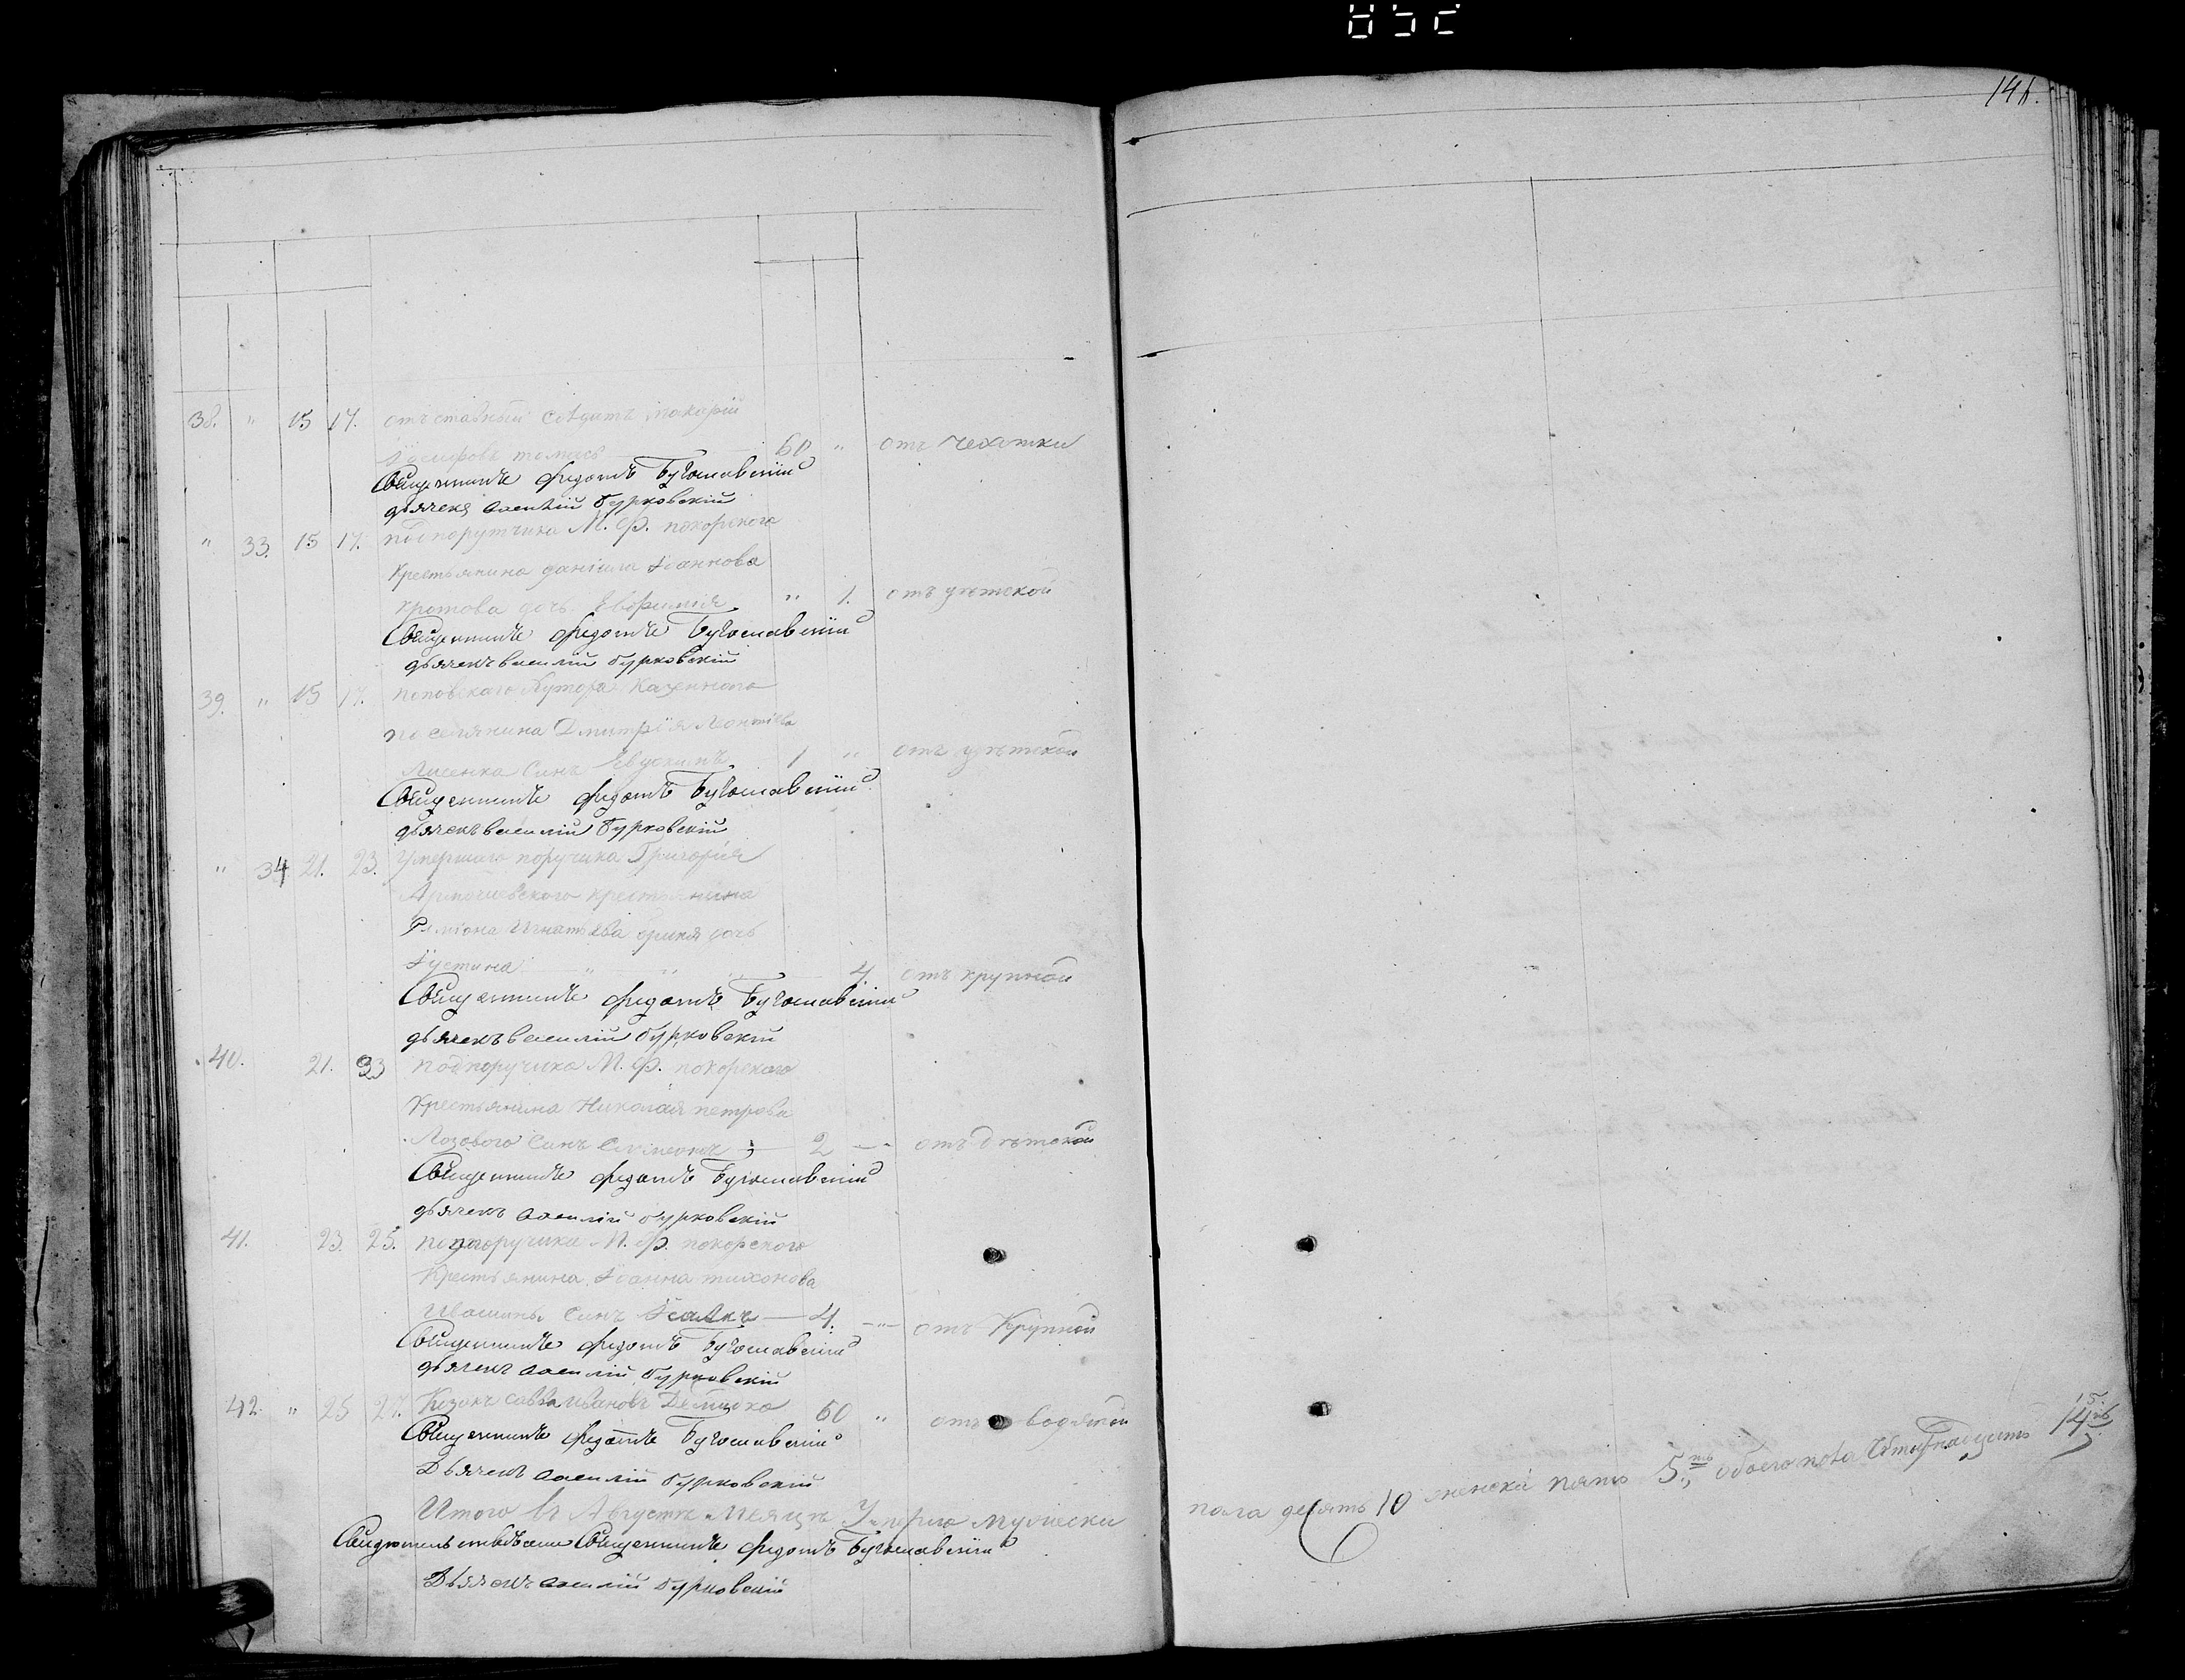 852
141.
38. " 15 17. отъставный Солдатъ макарій
Іосифовъ 60 " отъ чехотки
Священникъ Федотъ Бугославскій
дьячекъ василій Бурковскій
" 33. 15 17. подпорутчика М. Ф. покорского
Крестьянина даніила Іоаннова
кротова дочь Евфимія " 1. отъ дѣтской
Священникъ Федотъ Бугославскій
дьячекъ василій Бурковскій
39. " 15 17. поповскаго Хутора Казенного
поселянина Дмитрія Леонтіева
Лисенка Синъ Евдокимъ 1 " отъ дѣтской
Священникъ Федотъ Бугославскій
дьячекъ василій Бурковскій
" 34 21. 23. Умершаго поручика Григорія
крестьянина
Игнатьева дочь
Іустина " " 4. отъ крупной
Священникъ Федотъ Бугославскій
дьячекъ василій Бурковскій
40. 21. 23 подпоручика М. Ф. покорского
Крестьянина Николая петрова
Лозового Синъ Симеонъ 2 " отъ дѣтской
Священникъ Федотъ Бугославскій
дьячекъ василій Бурковскій
41. 23. 25. подпоручика М. Ф. покорского
Крестьянина Іоанна тихонова
Ивашины Синъ Ісаакъ 4. " отъ Крупной
Священникъ Федотъ Бугославскій
дьячекъ василій Бурковскій
42. " 25 27. Козакъ савва ивановъ 60 " отъ водяной
Священникъ Федотъ Бугославскій
Дьячекъ василій Бурковскій
Итого въ Августѣ мѣсяцѣ Умерло мужески
пола десять 10 женска пять 5.ть обоего пола Четырнадцать
Священникъ Федотъ Бугославскій
Дьячекъ василій Бурковскій